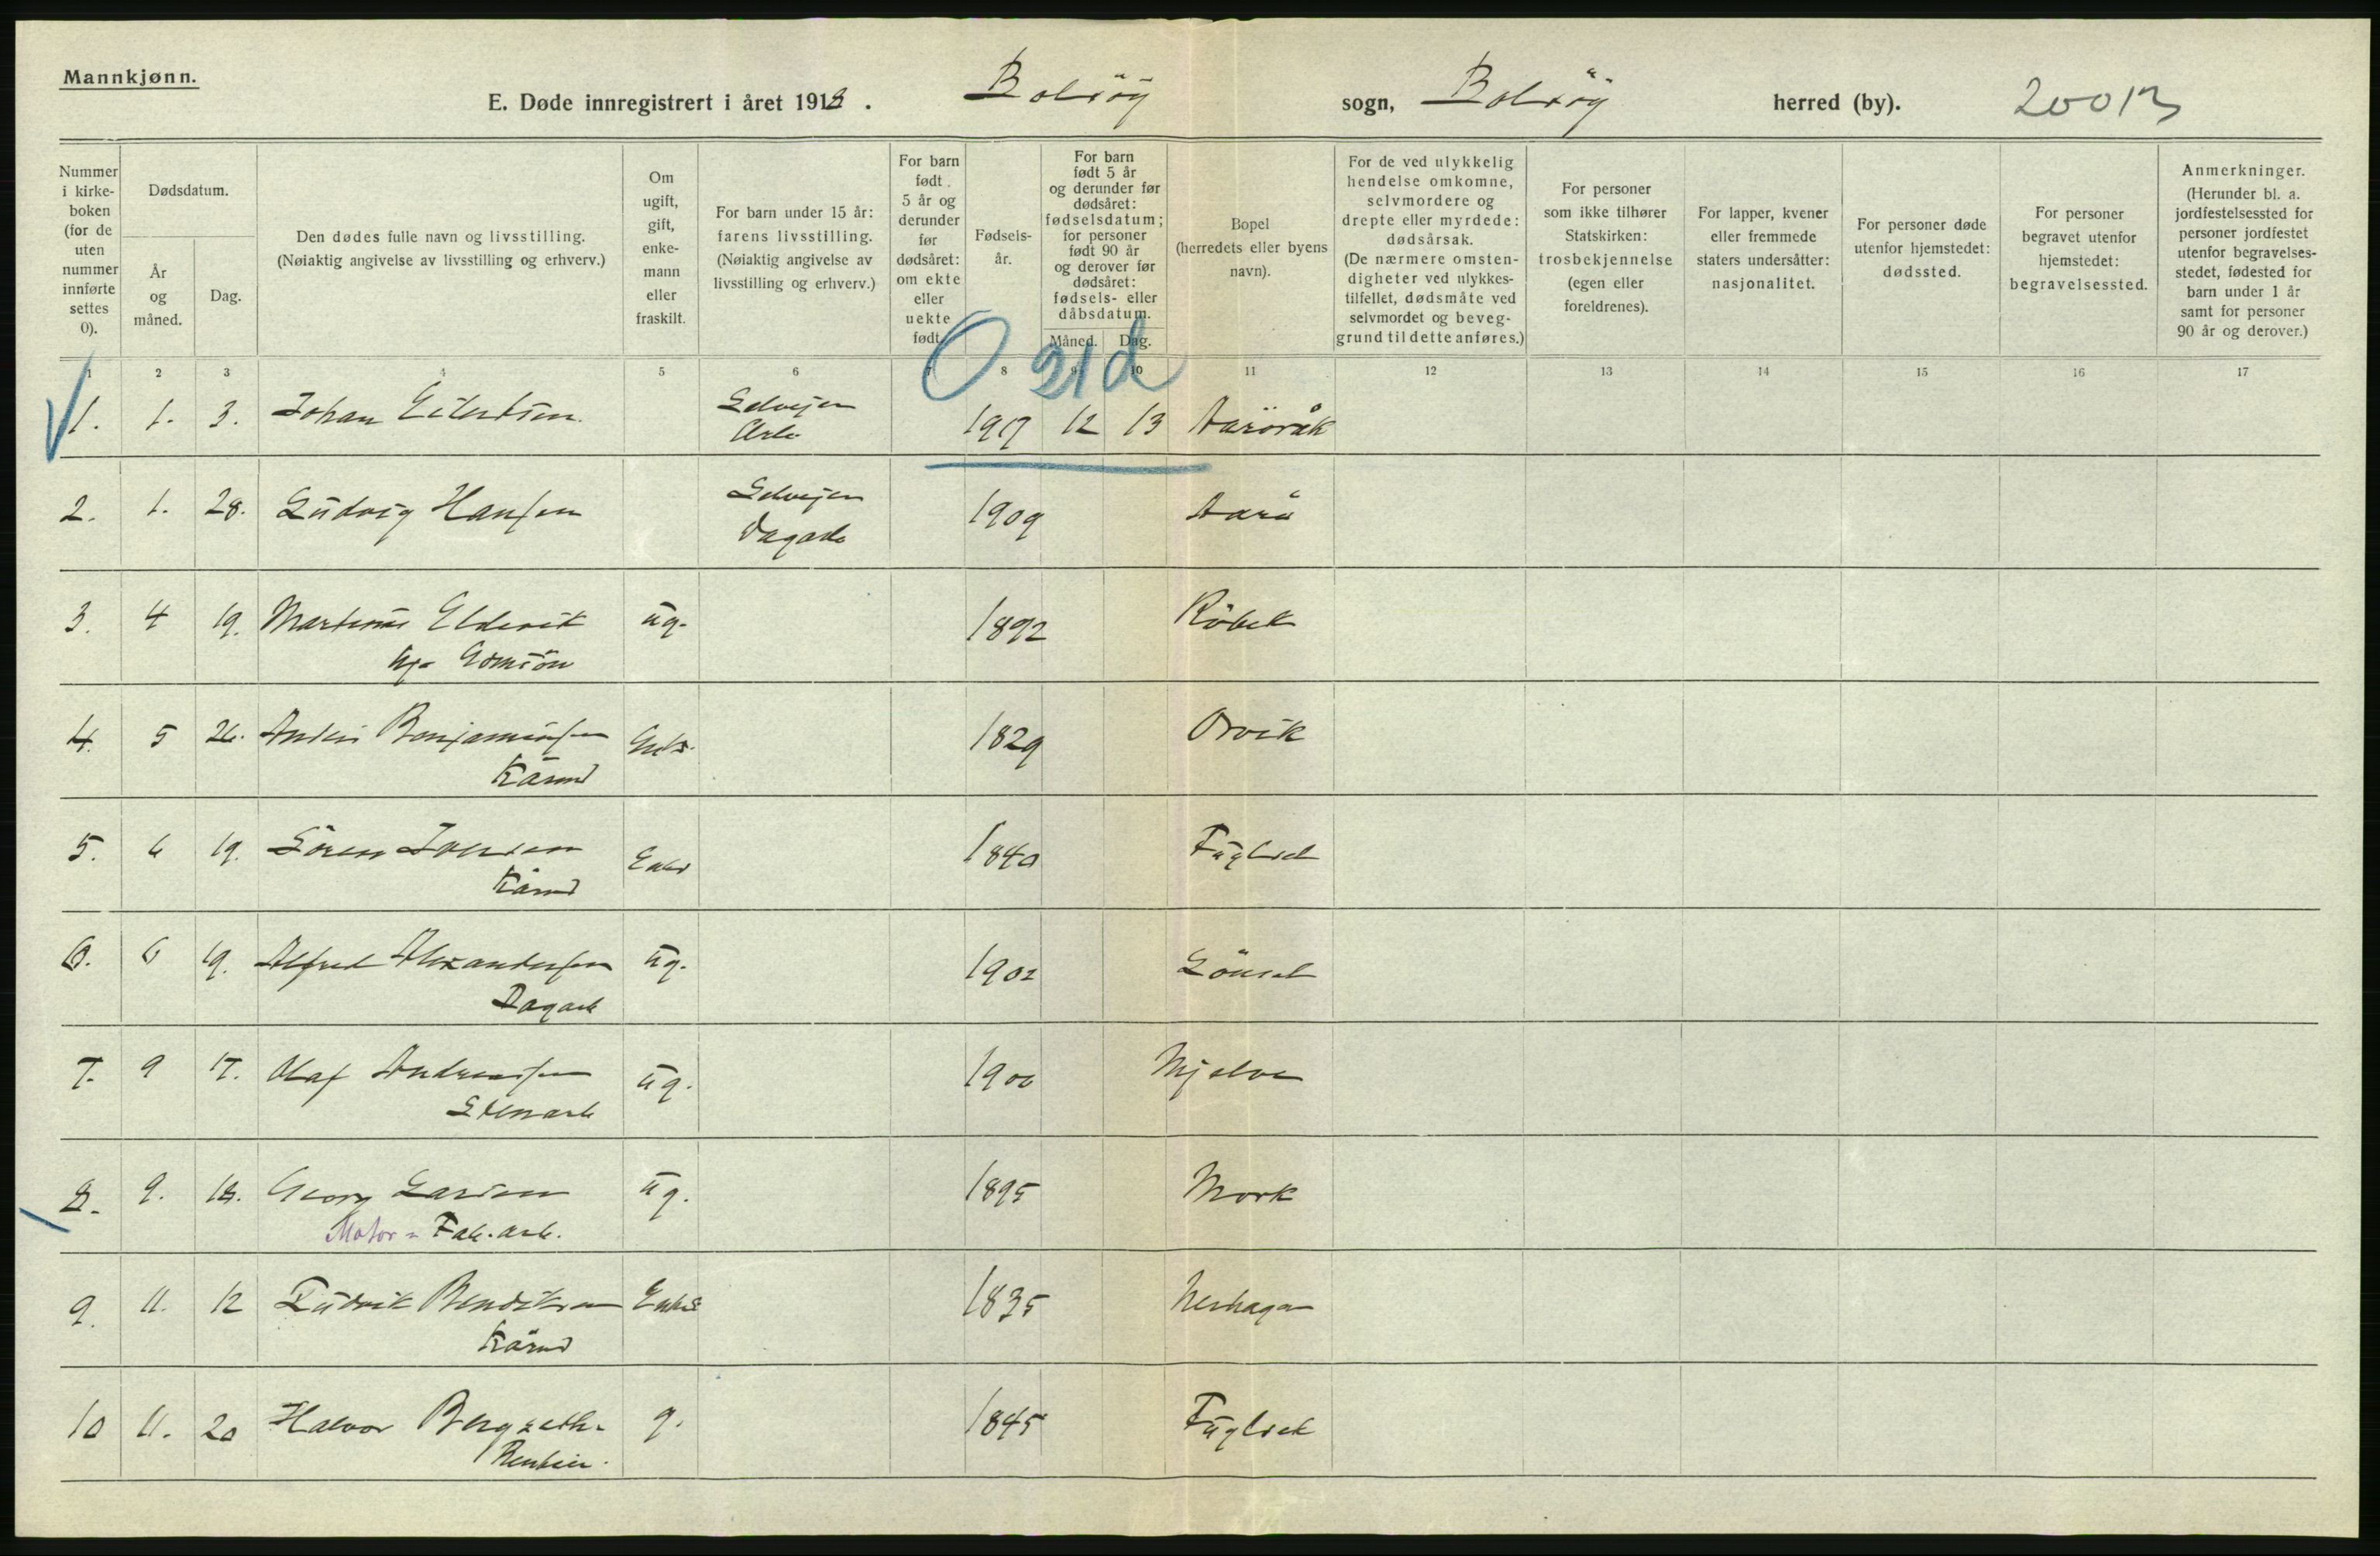 Mannkjønn.
E. Døde innregistrert i året 1918. Bolsöy sogn, Bolsöy herred (by). 20013
Nummer i kirke- boken (for de uten nummer innførte settes 0).
Dødsdatum.
År og måned.
Dag.
Den dødes fulle navn og livsstilling.
(Nøiaktig angivelse av livsstilling og erhverv.)
Om ugift, gift, enke- mann eller fraskilt.
For barn under 15 år: farens livsstilling. (Nøiaktig angivelse av livsstilling og erhverv.)
For barn født 5 år og derunder før dødsåret: om ekte eller uekte født.
Fødsels- år.
For barn født 5 år og derunder før dødsåret: fødselsdatum; for personer født 90 år og derover før dødsåret: fødsels- eller dåbsdatum.
Måned. Dag.
Bopel (herredets eller byens navn).
For de ved ulykkelig hendelse omkomne, selvmordere og drepte eller myrdede: dødsårsak. (De nærmere omsten- digheter ved ulykkes- tilfellet, dødsmåte ved selvmordet og beveg- grund til dette anføres.)
For personer som ikke tilhører Statskirken: trosbekjennelse (egen eller foreldrenes).
For lapper, kvener eller fremmede staters undersåtter: nasjonalitet.
For personer døde utenfor hjemstedet: dødssted.
For personer begravet utenfor hjemstedet: begravelsessted.
Anmerkninger. (Herunder bl. a. jordfestelsessted for personer jordfestet utenfor begravelses- stedet, fødested for barn under 1 år samt for personer 90 år og derover.)
1 2 3 4 5 6 7 8 9 10 11 12 13 14 15 16 17
0 21 d
1. 1. 3. Johan Eilertsen. Selvejer 1917 12 13 Aaröråk
Arb.
2. 1. 28. Ludvig Hansen Selvejer 1909 Aarö
Dagarb
3. 4 19. Martinus Elderik ug. 1892 Röbek
4. 5 26. Anders Benjaminsen Enke. 1829 Orvik
Kårmd
5. 6 19. Sören Iversen Enke 1840 Fuglset
Kårmd
6. 6 19. Alfred Alexandersen ug. 1902 Lönset
Dagarb
7. 9 17. Olaf Andreassen ug. 1900 Mjelve
8. 9. 18. Georg Larsen ug. 1895 Mork
Motor - Fab. arb.
9. 11. 12 Ludvik Bendiksen Enke 1835 Neshagen
Kårmd
10 11. 20 Halvor Bergseth g. 1845 Fuglset
Rentier.